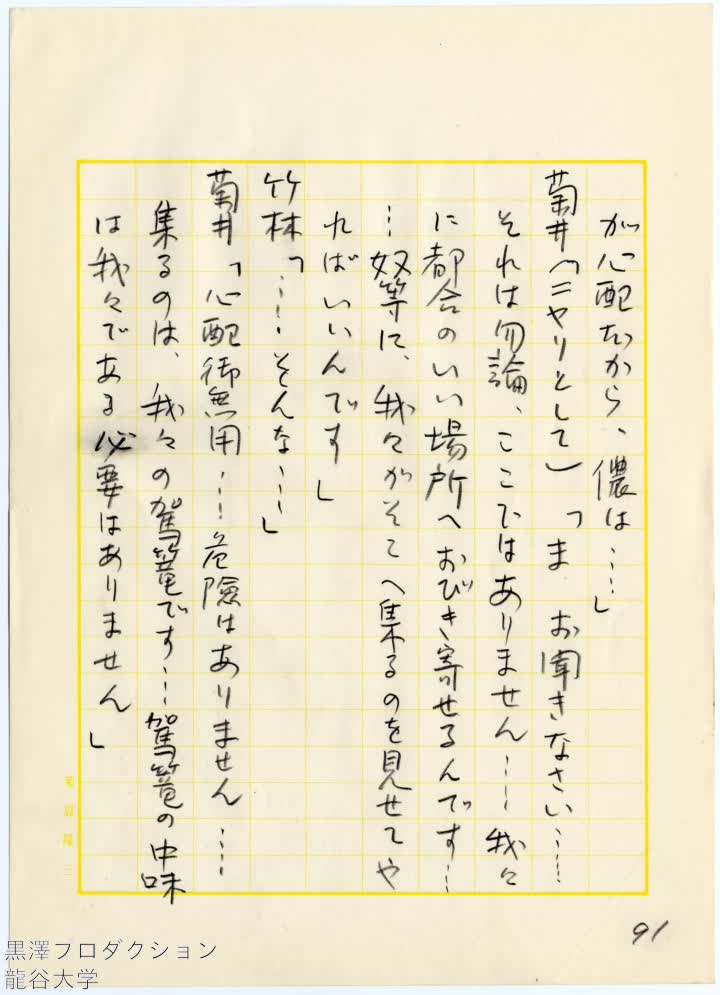 が心配だから、儂は……」
菊井（ニヤリとして）「ま お聞きなさい……
それは勿論、ここではありません……我々
に都合のいい場所へおびき寄せるんです…
…奴等に、我々がそこへ集るのを見せてや
ればいいんです」
竹林「……そんな……」
菊井「心配御無用……危険はありません……
集るのは、我々の駕篭です…駕篭の中味
は我々である必要はありません」
91
黒澤プロダクション
龍谷大学